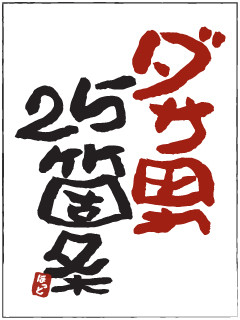 ダサ男
25箇条
ほっと